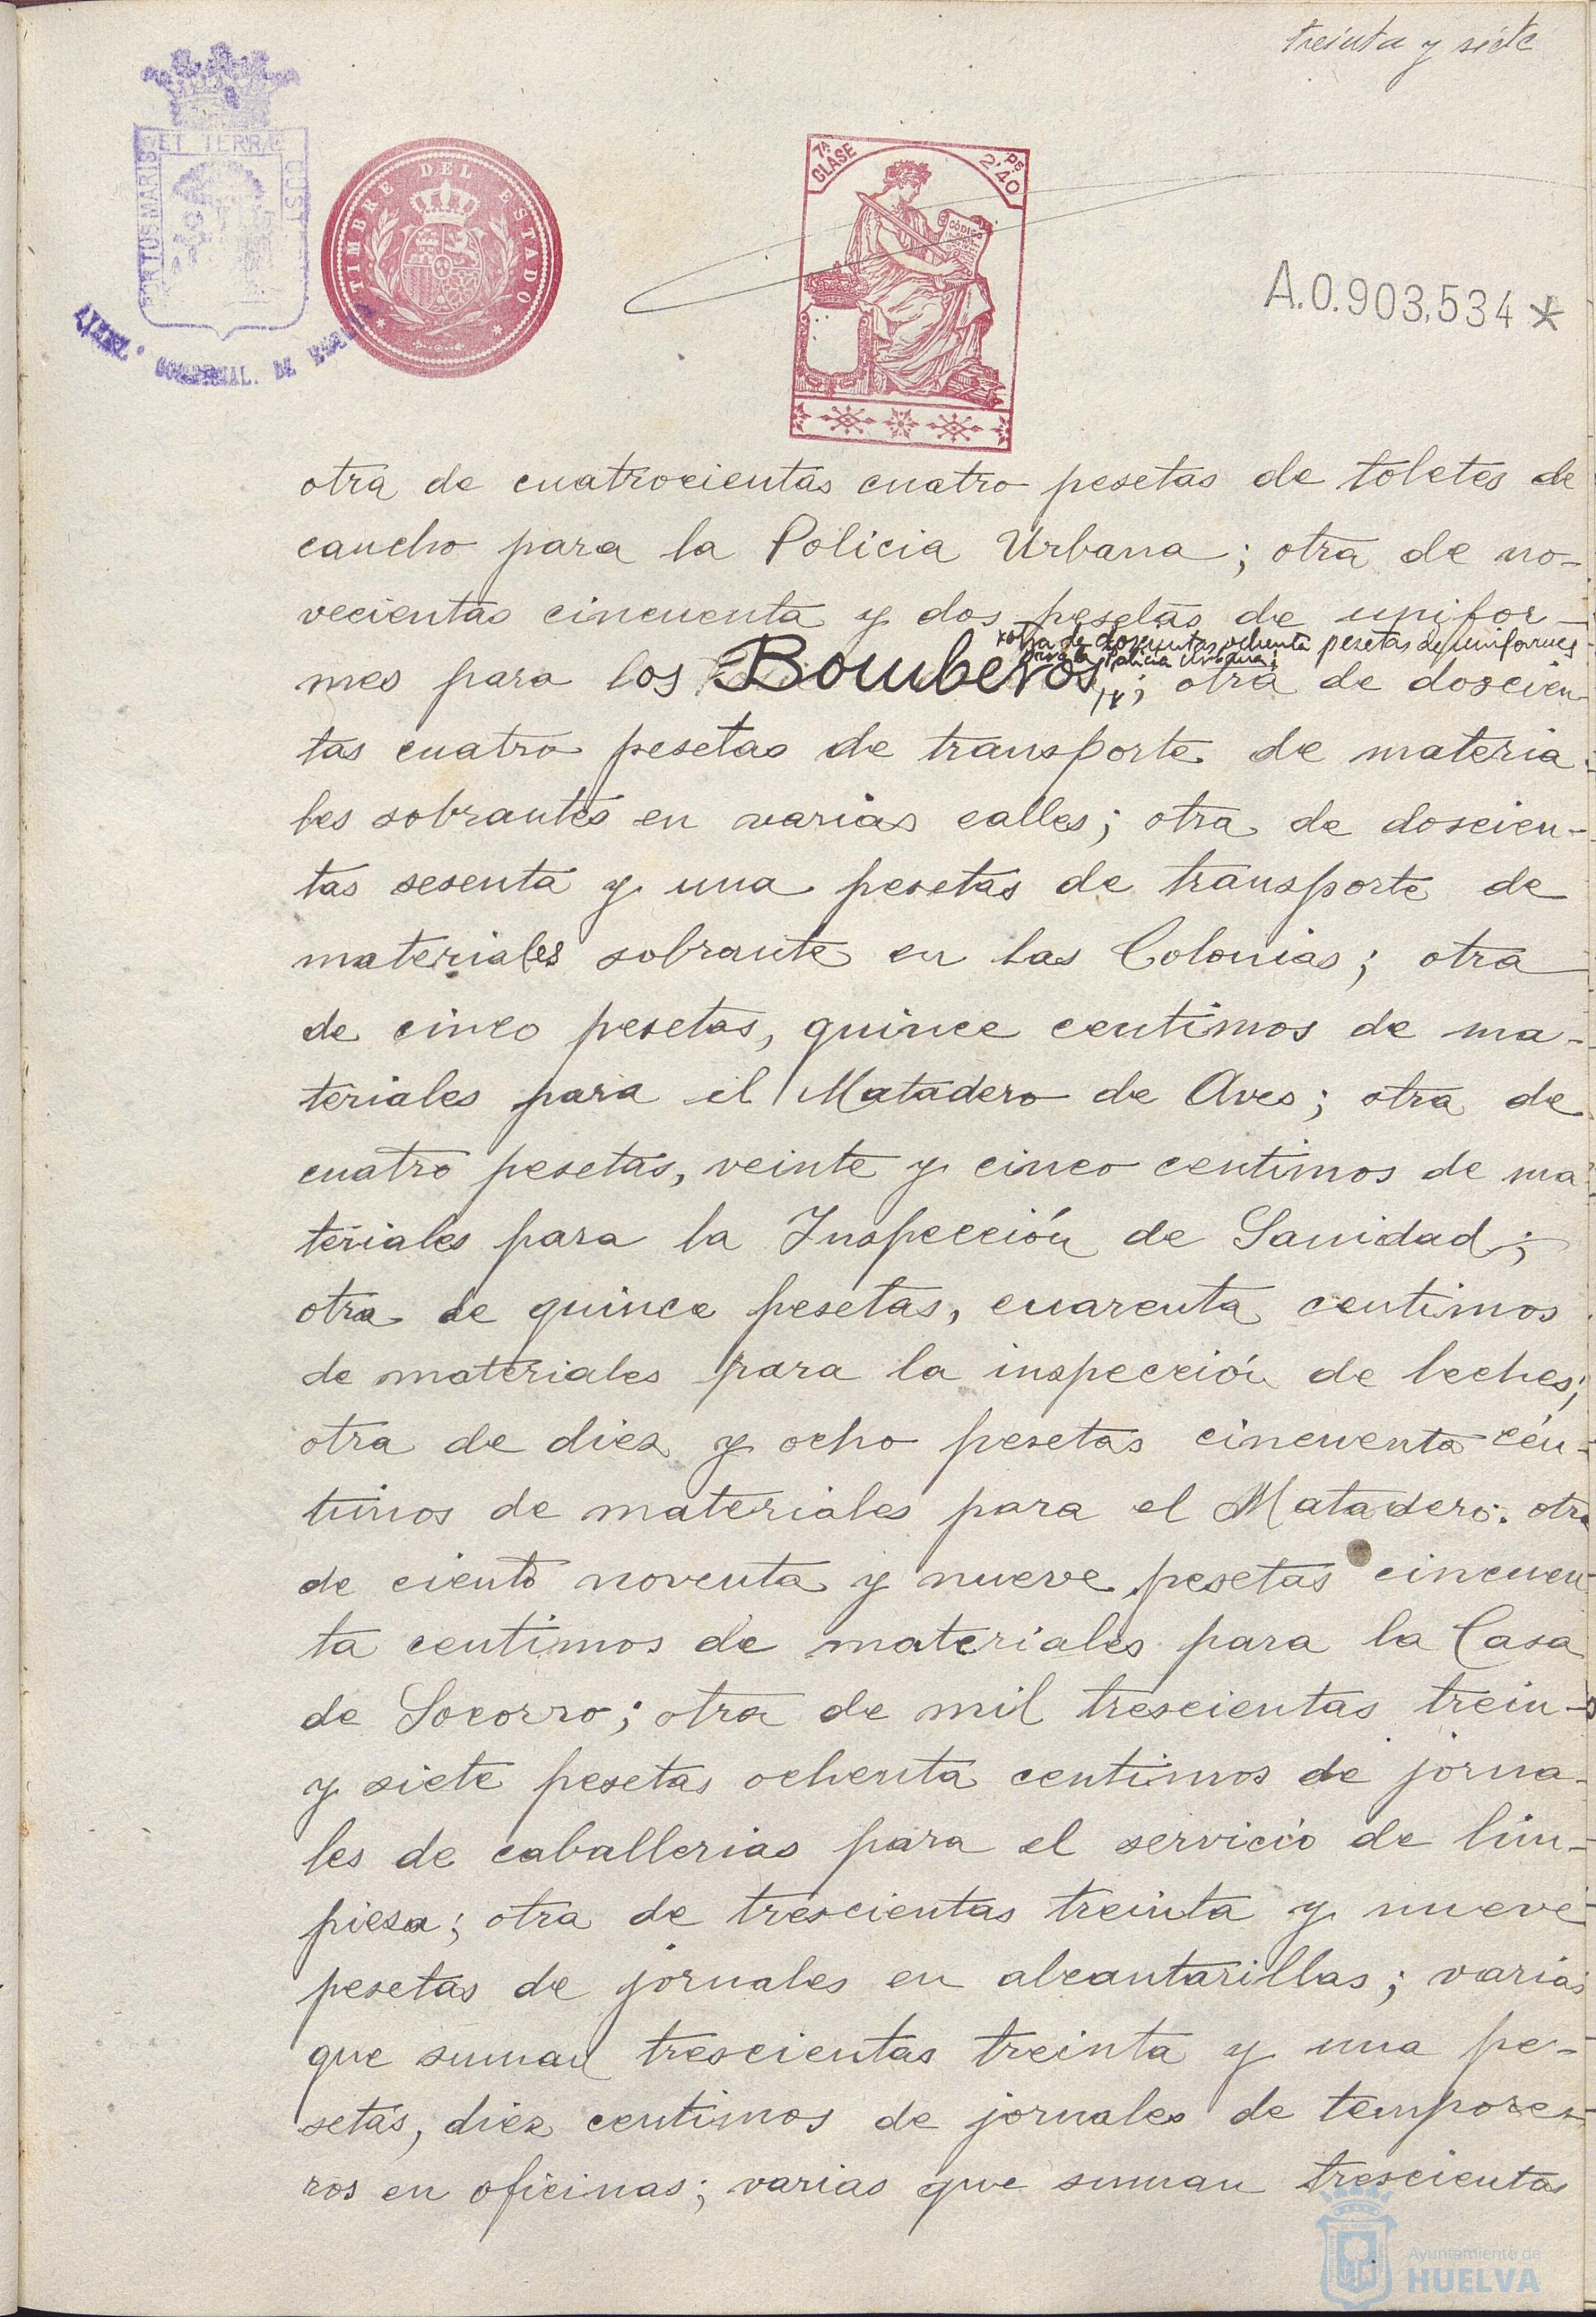 treinta y siete
ET TERRÆ
PORTUS MARIS
CUST
AYUNT
DE HUELVA
TIMBRE DEL ESTADO
7ª CLASE
2'40 Ps
CÓDIGO
A.0.903,534 *
otra de cuatrocientas cuatro pesetas de toletes de
caucho para la Policia Urbana; otra de no-
vecientas cincuenta y dos pesetas de unifor-
x otra de doscientas ochenta pesetas de uniformes
para la Policia Urbana;
mes para los Bomberos x; otra de doscien-
tas cuatro pesetas de transporte de materia-
les sobrantes en varias calles; otra de doscien-
tas sesenta y una pesetas de transporte de
materiales sobrante en las Colonias; otra
de cinco pesetas, quince centimos de ma-
teriales para el Matadero de Aves; otra de
cuatro pesetas, veinte y cinco centimos de ma-
teriales para la Inspección de Sanidad;
otra de quince pesetas, cuarenta centimos
de materiales para la inspección de leches;
otra de diez y ocho pesetas cincuenta cén-
timos de materiales para el Matadero; otra
de ciento noventa y nueve pesetas cincuen-
ta centimos de materiales para la Casa
de Socorro; otra de mil trescientas trein-
y siete pesetas ochenta centimos de jorna-
les de caballerias para el servicio de lim-
pieza; otra de trescientas treinta y nueve
pesetas de jornales en alcantarillas; varias
que suman trescientas treinta y una pe-
setas, diez centimos de jornales de tempore-
ros en oficinas; varias que suman trescientas
Ayuntamiento de
HUELVA